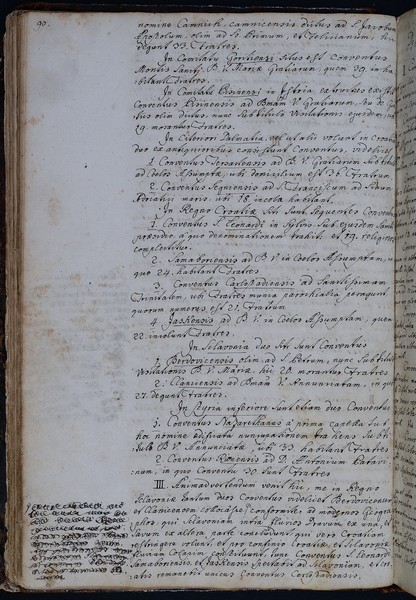 90.
nomine Camnich, camnicensis dictus ad S. Jacobum
Apostolum, olim ad S. Primum, et Felicianum, hi
degunt 33. Fratres.
In Comitatu Goritiensi situs est Conventus
Montis Sancti B. V. Mariæ Gratiarum, quem 39. in ha
bitant Fratres.
In Comitatu Pisinensi in Istria
Conventus Pisinensis ad Bmam V. Gratiarum,
olim dictus, nunc sub titulo Visitationis ejusdem,
19. morantur Fratres.
In Citeriori Dalmatia, vel ut alii volunt in Croatia
duo ex antiquioribus consistunt Conventus, videlicet
1. Conventus Tersactensis ad B. V. Gratiarum sub titulo
ad Cœlos Assumptæ, ubi domicilium est 36 Fratrum
2. Conventus Segniensis ad S. Franciscum ad
Adriatici maris, ubi 18. incolæ habitant.
In Regno Croatiæ siti sunt sequentes Conventus
1. Conventus S. Leonardi in sylvis sub ejusdem Sancti
præsidio a quo denominationem trahit, et 19. religiosos
complectitur.
2. Samaboriensis ad B. V. in Cœlos Assumptam, in
quo 24. habitant Fratres
3. Conventus Carlostadiensis ad Sanctissimam
Trinitatem, ubi Fratres munia parochialia peragunt,
quorum numerus est 21. Fratrum
4. Jaskensis ad B. V. in Cœlos Assumptam, quem
22. incolunt Fratres.
In Sclavonia duo siti sunt Conventus
1. Berdovicensis olim ad S. Petrum, nunc sub titulo
Visitationis B. V. Mariæ. hic 20. morantur Fratres
2. Clanicensis ad Bmam V. Annunciatam, in quo
27. degunt Fratres.
In Styria inferiore sunt etiam duo Conventus
1. Conventus Nazarethanus a prima capella sub
hoc nomine ædificata nuncupationem trahens sub ti
tulo B. V. Annunciatæ, ubi 33. habitant Fratres
2. Conventus Rannensis ad D. Antonium Patavi
num, in quo Conventu 30 sunt Fratres
III. Animadvertendum venit hic, me in Regno
Sclavoniæ tantum duos Conventus videlicet Berdovicensem
et Clanicensem collocasse conformiter ad modernos Geogra
phos, qui Sclavoniam intra fluvios Dravum ex una, et
Savum ex altera parte concludunt; qui vero Croatiam
restringere volunt, et pro confinio Croatiæ, et Sclavoniæ
fluvium Colapim constituunt, tunc Conventus S. Leonardi
Samaboriensis, et Jaskensis spectabit ad Sclavoniam, et
remanebit unicus Conventus Carlostadiensis,